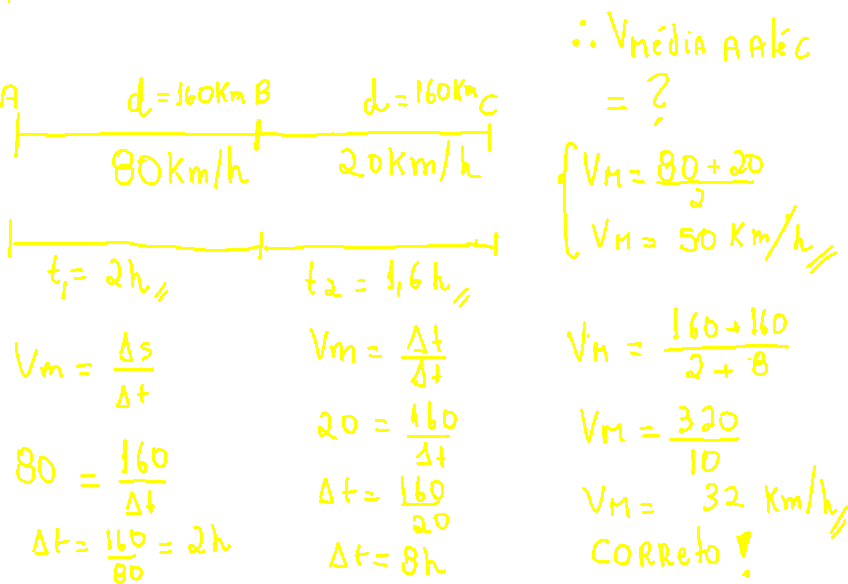 A d=160Km B d=160Km C
80Km/h 20Km/h
t₁= 2h t₂ = 1,6h
Vm = Δs/Δt
80 = 160/Δt
Δt = 160/80 = 2h
Vm = Δt/Δt
20 = 160/Δt
Δt = 160/20
Δt = 8h
∴ Vmédia A Até C
= ?
VM = 80+20/2
VM = 50 Km/h
VM = 160+160/2+8
VM = 320/10
VM = 32 Km/h
CORReto !